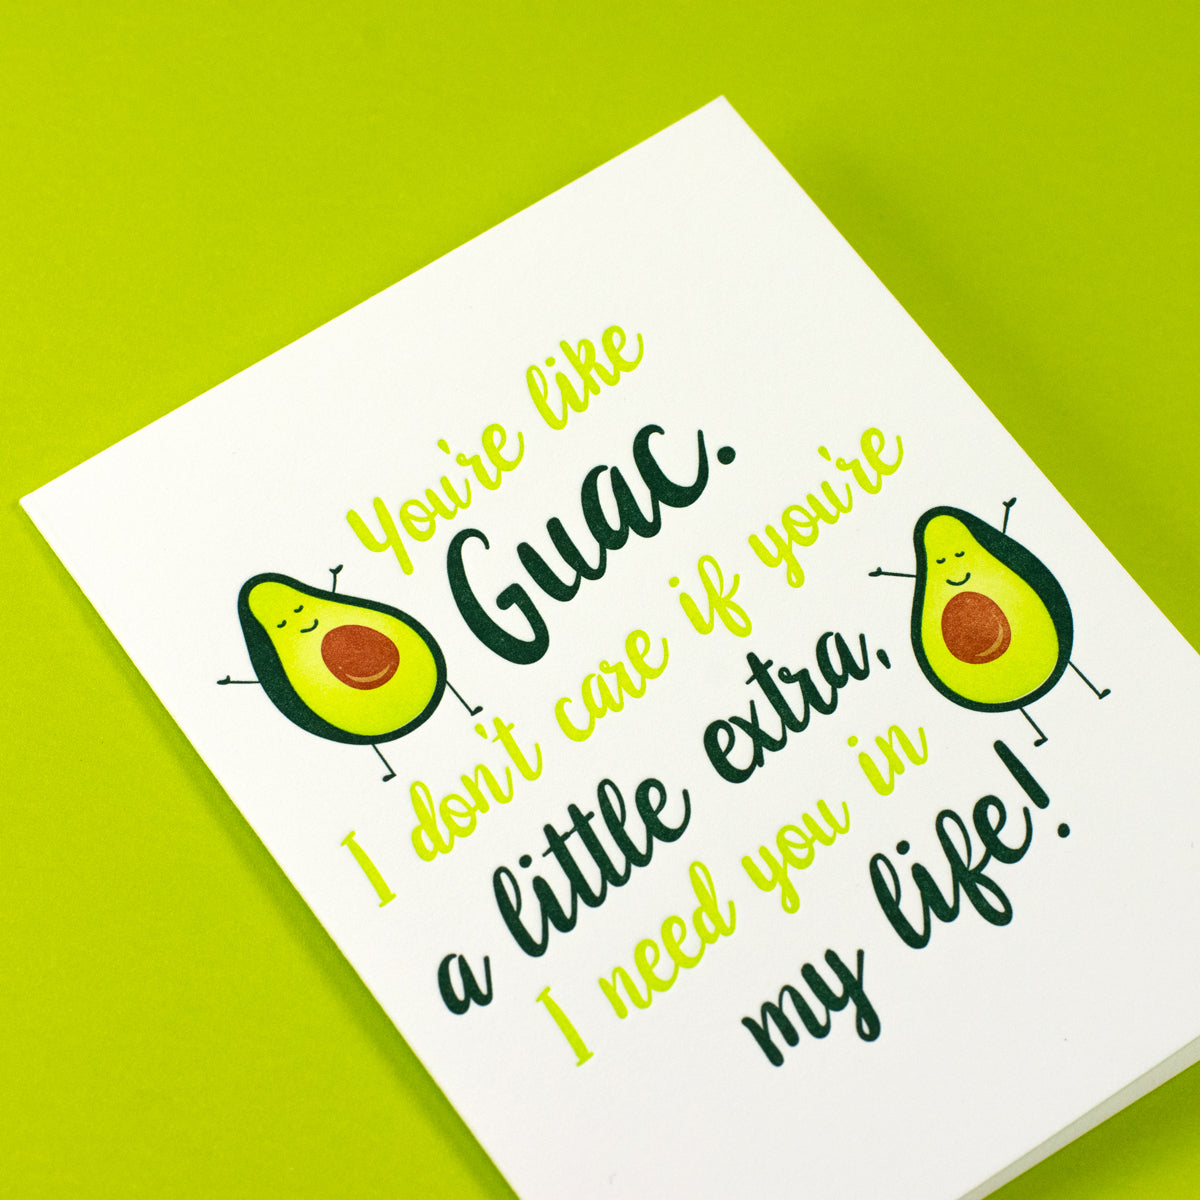 You're like
Guac.
I don't care if you're
a little extra,
I need you in
my life!